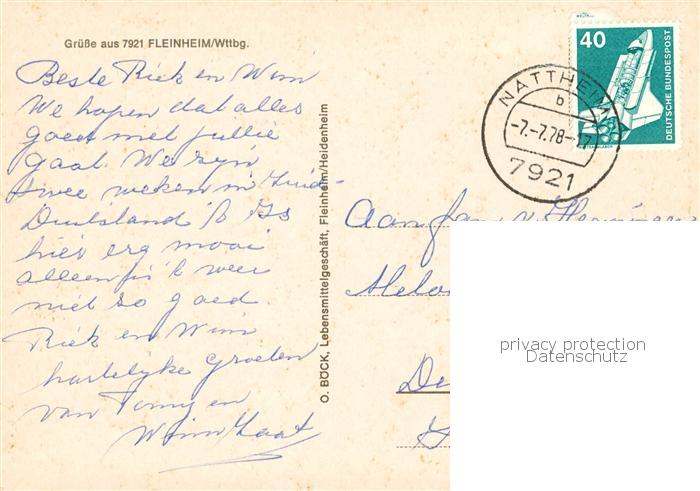 Grüße aus 7921 FLEINHEIM/Wttbg.
Beste Riek en Wim
We hopen dat alles
goed met jullie
gaat. We zijn
twee weken in Zuid-
Duitsland
hier erg mooi
alleen is 't weer
niet so goed.
Riek en Wim
hartelijke groeten
van Tonny en
Wim
O. BÖCK, Lebensmittelgeschäft, Fleinheim/Heidenheim
40
DEUTSCHE BUNDESPOST
NATTHEIM
b
-7.-7.78-17
7921
Aan fam. v.
privacy protection
Datenschutz